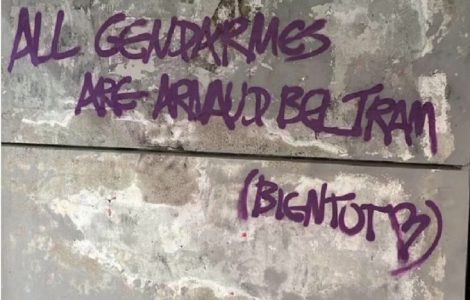 ALL GENDARMES
ARE ARNAUD BELTRAM
(BIENTOT)